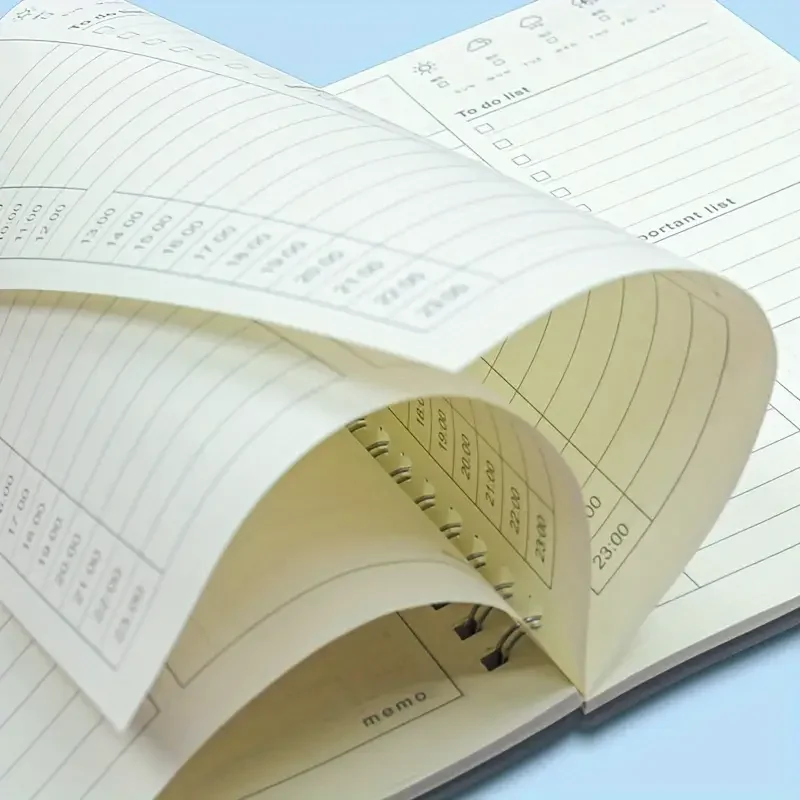 To do
10:00
11:00
12:00
13:00
14:00
15:00
16:00
17:00
18:00
19:00
20:00
21:00
22:00
23:00
To do list
portant list
18:0
19:00
20:00
21:00
22:00
23:00
00
23:00
17:00
18:00
19:00
20:00
21:00
22:00
23:00
memo